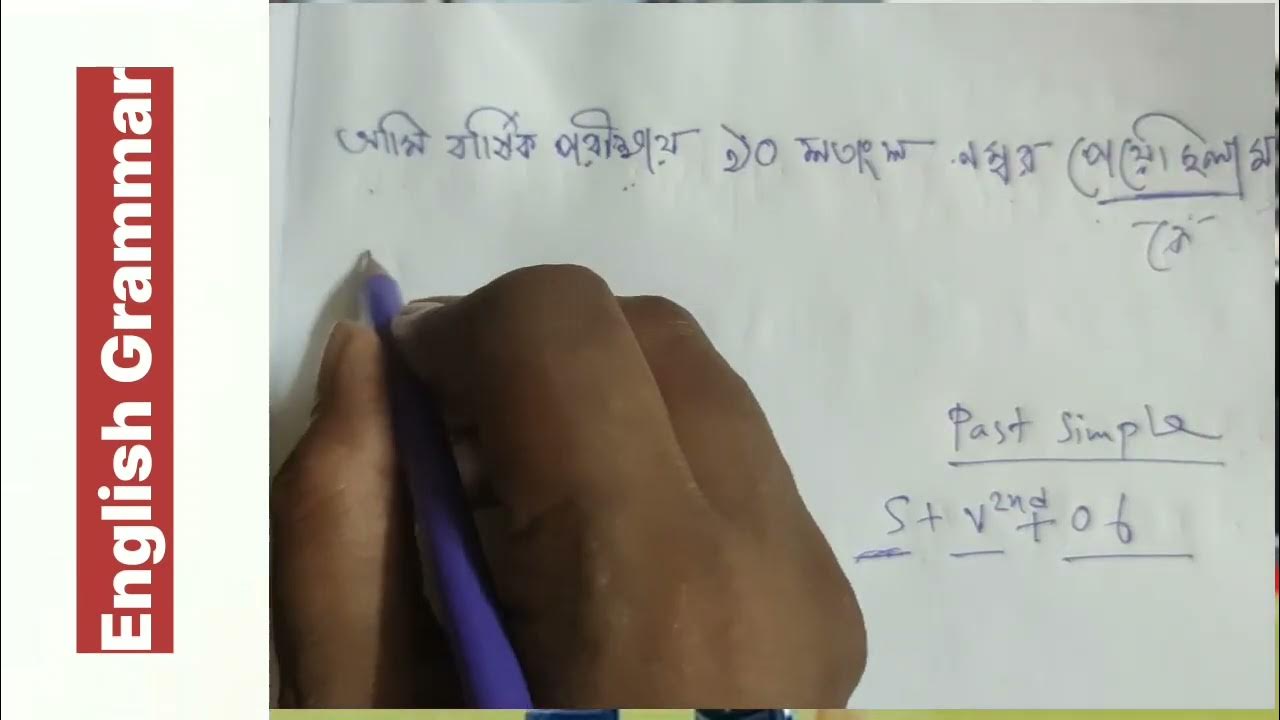 English Grammar
আমি বার্ষিক পরীক্ষায় ৯০ শতাংশ নম্বর পেয়েছিলাম
Past Simple
S + V 2nd + ob